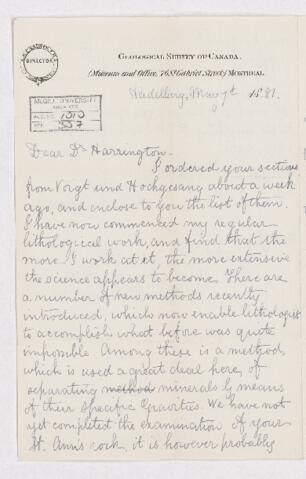 DIRECTOR
GEOLOGICAL SURVEY OF CANADA.
(Museum and Office, 76 St Gabriel Street) MONTREAL
Heidelberg, May 7th 1881.
McGILL UNIVERSITY
ARCHIVES
ACC. NO. 1010
REF. 557
Dear Dr Harrington.
I ordered your sections
from Voigt und Hochgesang about a week
ago, and enclose to you the list of them.
I have now commenced my regular
lithological work, and find that the
more I work at it, the more extensive
the science appears to become. There are
a number of new methods recently
introduced, which now enable lithologist
to accomplish what before was quite
impossible. Among these is a method,
which is used a great deal here, of
separating method minerals by means
of their specific gravities. We have not
yet completed the examination of your
St. Ann's rock, it is however probably